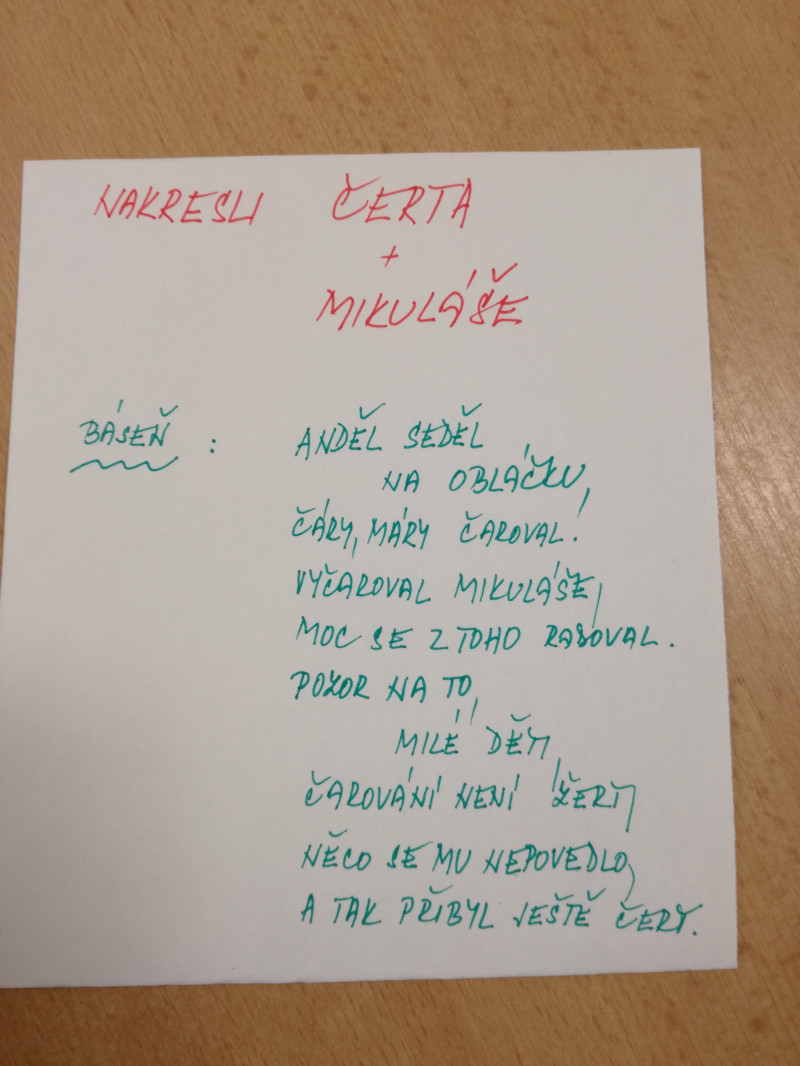 NAKRESLI ČERTA
+
MIKULÁŠE
BÁSEŇ : ANDĚL SEDĚL
NA OBLÁČKU,
ČÁRY, MÁRY ČAROVAL.
VYČAROVAL MIKULÁŠE,
MOC SE Z TOHO RADOVAL.
POZOR NA TO,
MILÉ DĚTI,
ČAROVÁNÍ NENÍ ŽERT,
NĚCO SE MU NEPOVEDLO,
A TAK PŘIBYL JEŠTĚ ČERT.